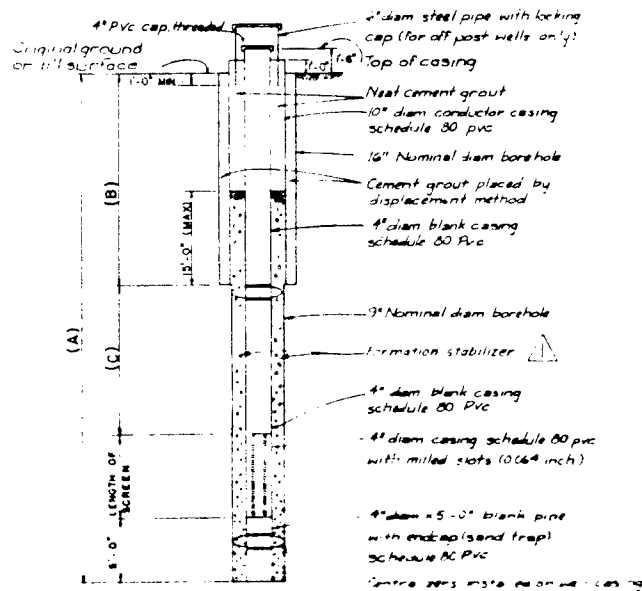 4" PVC cap, threaded
diam steel pipe with locking
cap (for off post wells only)
Original ground
or fill surface
1'-0" MIN.
1'-0"
1'-6"
Top of casing
Neat cement grout
10" diam conductor casing
schedule 80 pvc
16" Nominal diam borehole
Cement grout placed by
displacement method
4" diam blank casing
schedule 80 PVC
(A)
(B)
15'-0" (MAX)
(C)
9" Nominal diam borehole
Formation stabilizer
4" diam blank casing
schedule 80 PVC
4" diam casing schedule 80 pvc
with milled slots (0.064 inch)
LENGTH OF
SCREEN
4" diam x 5'-0" blank pipe
with endcap (sand trap)
schedule 80 PVC
-0"
Centralizers installed on well casing